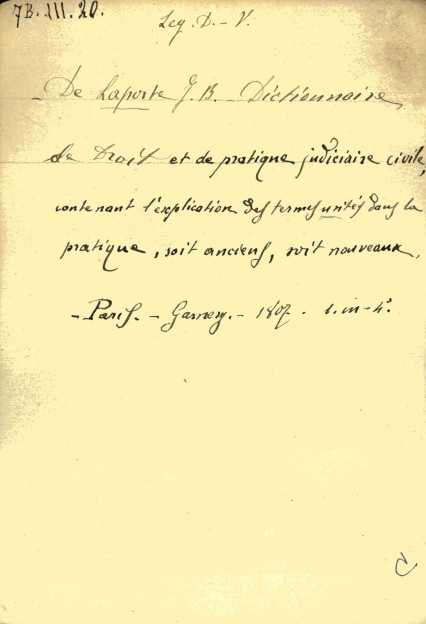 7B.III.20.
Leg. D. - V.
De Laporte J. B. Dictionnaire
de Droit et de pratique judiciaire civile,
contenant l'explication des termes usités dans la
pratique, soit anciens, soit nouveaux.
- Paris. - Garnery. - 1807. 1. in-4°.
C